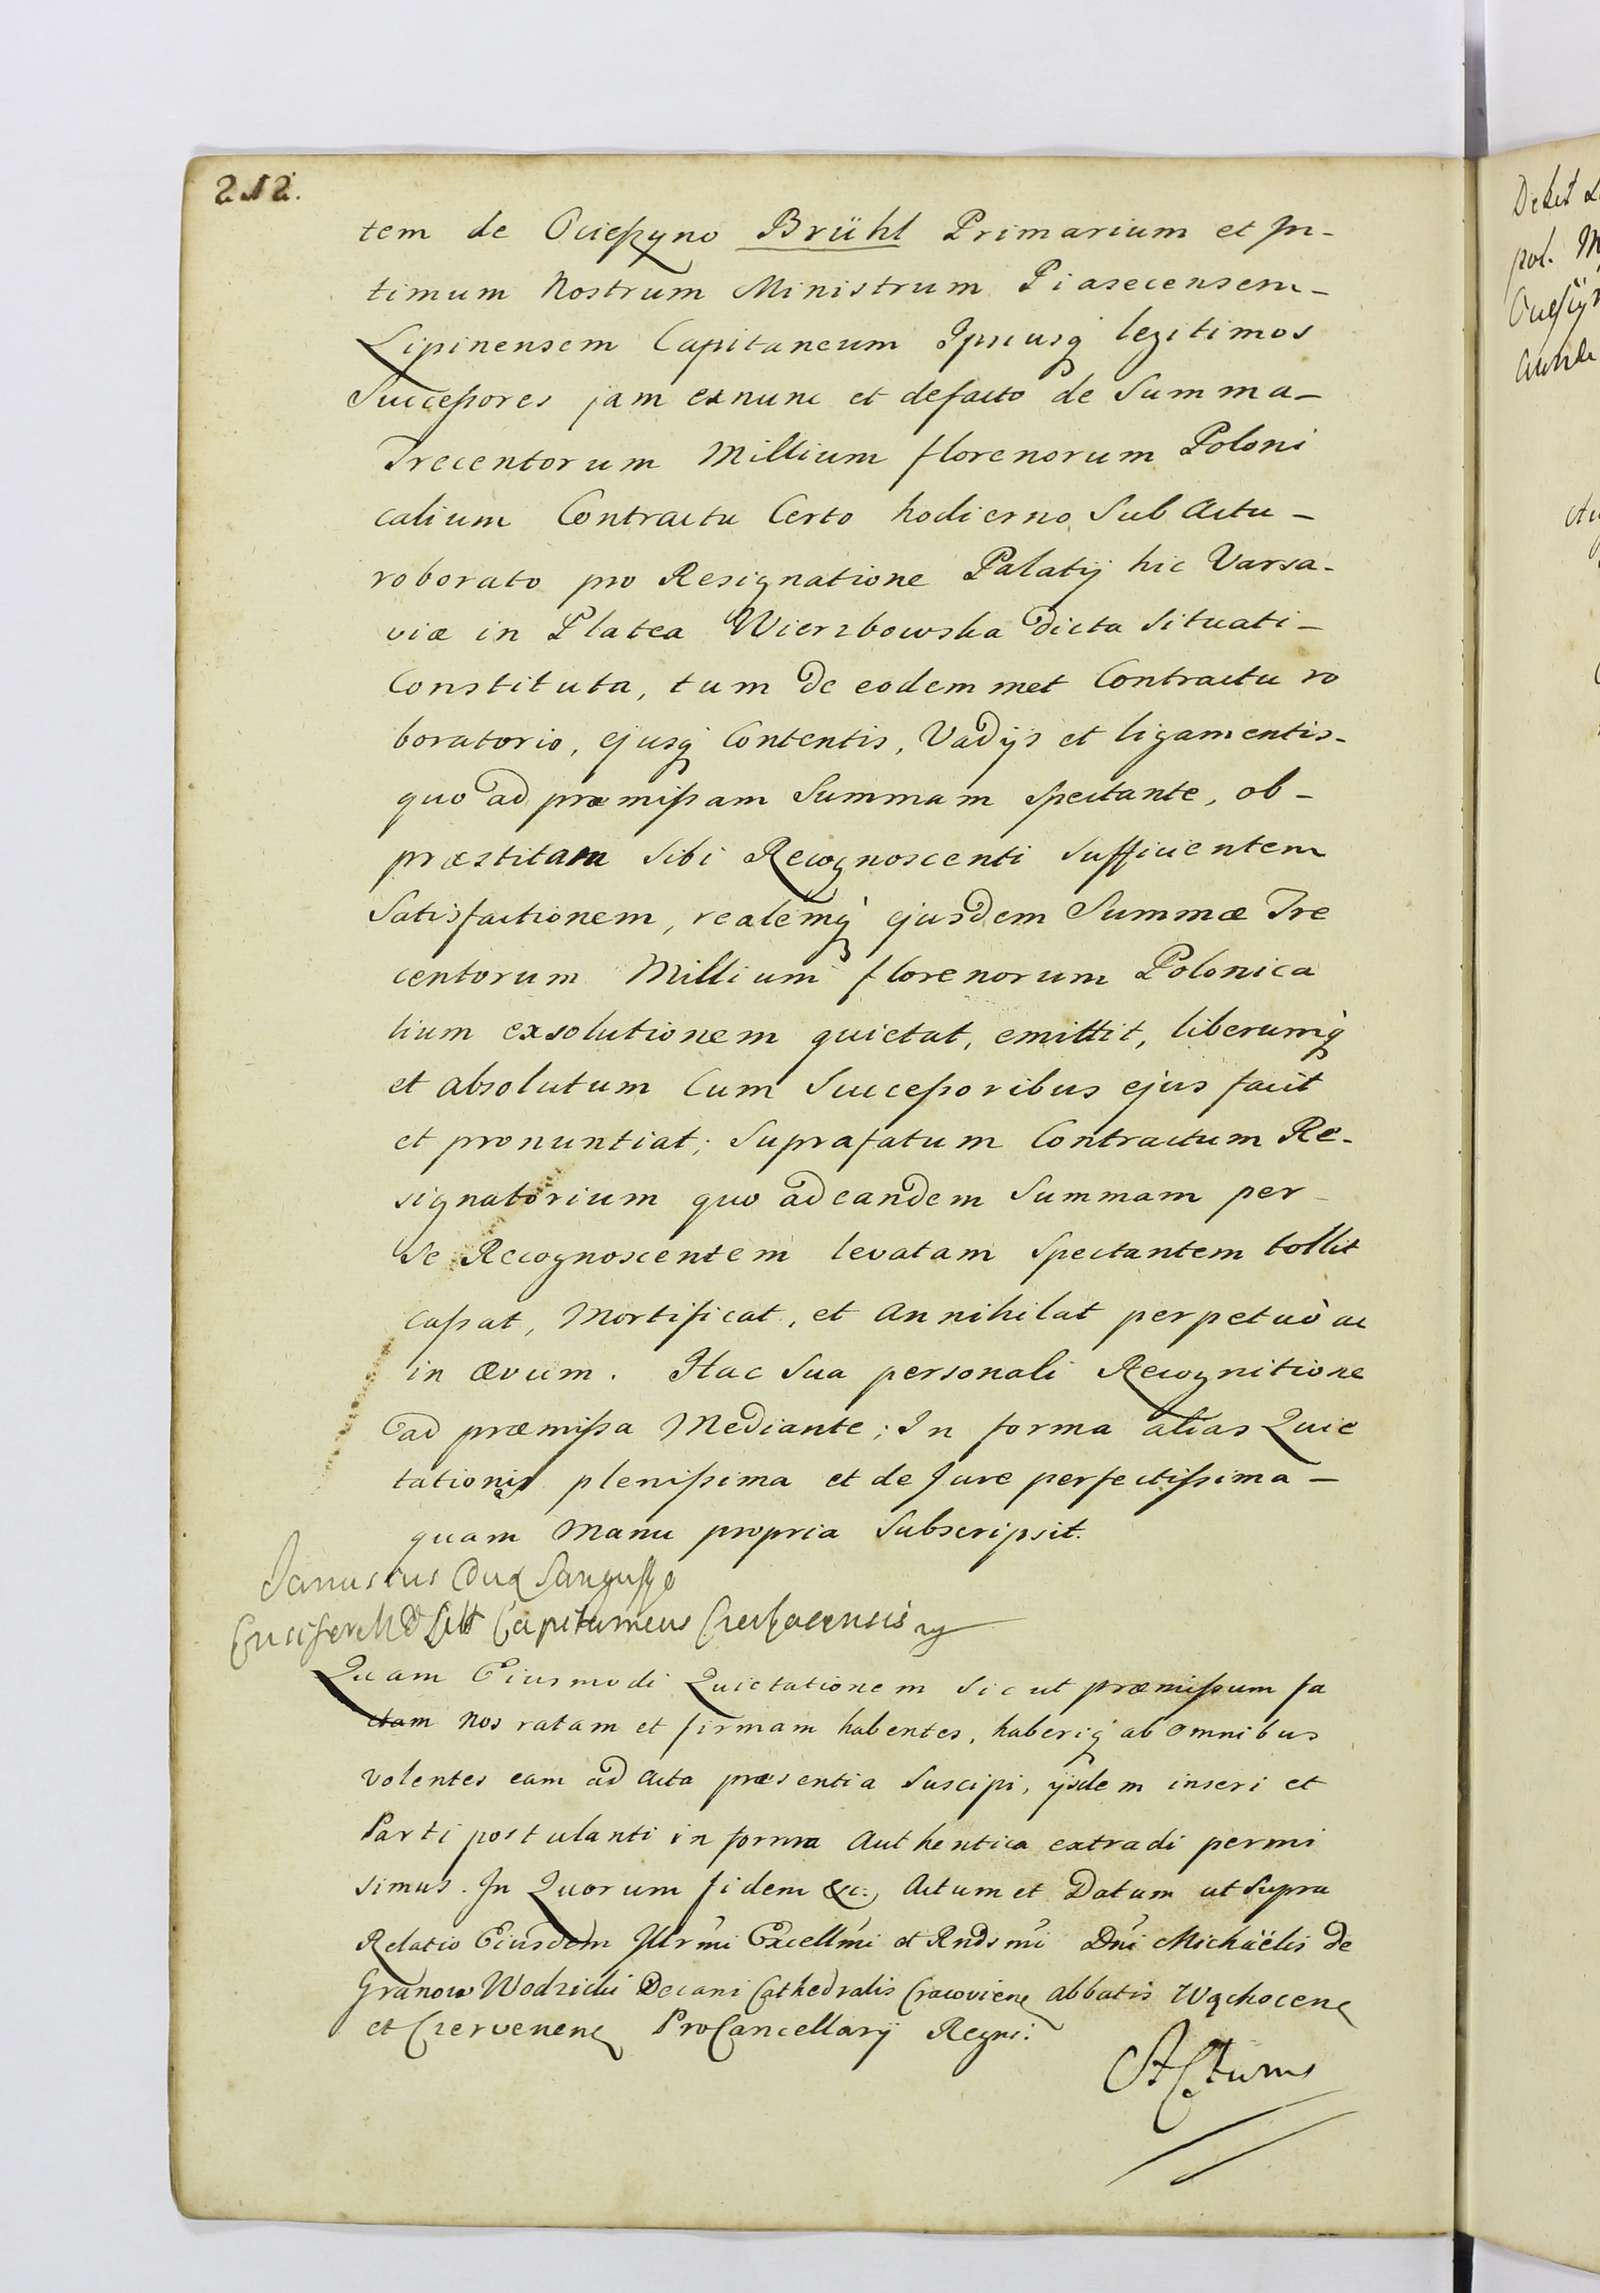 212.
tem de Ociessyno Brühl Primarium et In-
timum Nostrum Ministrum Piasecensem-
Lipinensem Capitaneum Ipsiusq legitimos
Successores jam exnunc et defacto de Summa-
Trecentorum Millium florenorum Poloni
calium Contractu Certo hodierno Sub Actu-
roborato pro Resignatione Palatij hic Varsa-
viæ in Platea Wierzbowska dicta Situati-
Constituta, tum de eodem met Contractu ro
boratorio, ejusq Contentis, Vadijs et ligamentis-
quo ad præmissam Summam spectante, ob-
præstitam Sibi Recognoscenti Sufficientem
Satisfactionem, realemq ejusdem Summæ Tre
centorum Millium florenorum Polonica
lium exsolutionem quietat, emittit, liberumq
et absolutum Cum Successoribus ejus facit
et pronuntiat; Suprafatum Contractum Re-
signatorium quo ad eandem Summam per-
Se Recognoscentem levatam Spectantem tollit
cassat, Mortificat, et annihilat perpetuò ac
in ævum. Hac Sua personali Recognitione
ad præmissa Mediante; In forma alias Quie
tationis plenissima et de Jure perfectissima-
quam Manu propria Subscripsit.
Janusius Dux Sangusz̧ko
Ensifer M D Litt Capitaneus
Quam Eiusmodi Quietationem Sic ut præmissum fa
ctam nos ratam et firmam habentes, haberiq ab omnibus
volentes eam ad acta præsentia Suscipi, ijsdem inseri et
Parti postulanti in forma Authentica extradi permi
simus. In Quorum fidem &c: Actum et Datum ut Supra
Relatio Eiusdem Illrmi Excellmi et Rndsmi Dni Michaëlis de
Granow Wodzicki Decani Cathedralis Cracoviens Abbatis Wąchocens
et Czervenens ProCancellarij Regni: